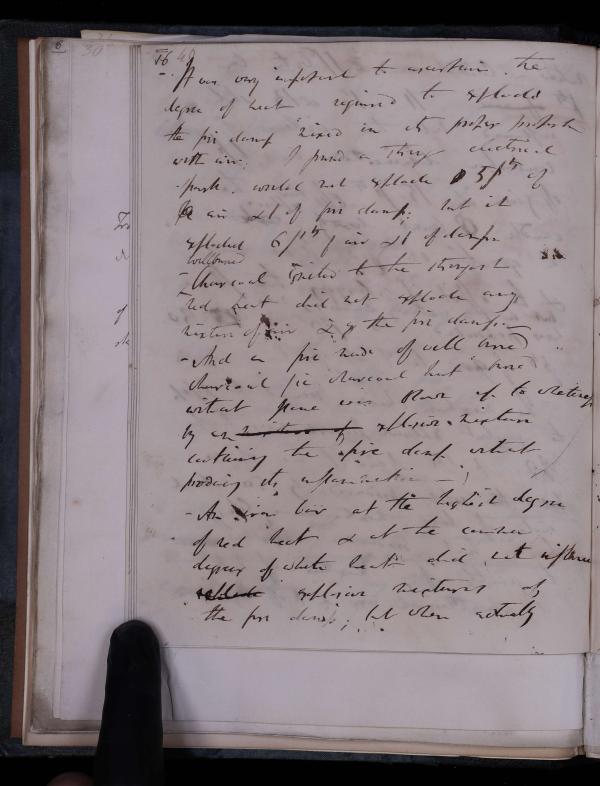 6 30 16
It was very important to ascertain the
degree of heat required to explode
the fire damp mixed in its proper proportion
with air; I found a strong electrical
spark would not explode 5 pts of
air & 1 of fire damp; but it
exploded 6 pts of air & 1 of damp
well burned
- Charcoal ignited to the strongest
red heat did not explode any
mixture of air & of the fire damp;
- And a fire made of well burned
charcoal ie charcoal that burned
without flame was blown up to whiteness
by an mixture of explosive mixture
containing the fire damp without
producing its inflammation
- An iron bar at the highest degree
of red heat & at the common
degree of white heat did not inflame
explode explosive mixtures of
the fire damp; but when actually